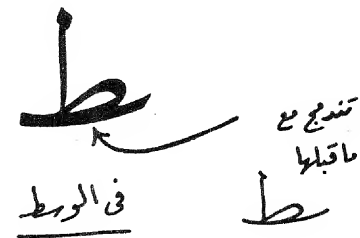 ط
تندمج مع
ما قبلها
ط
فى الوسط